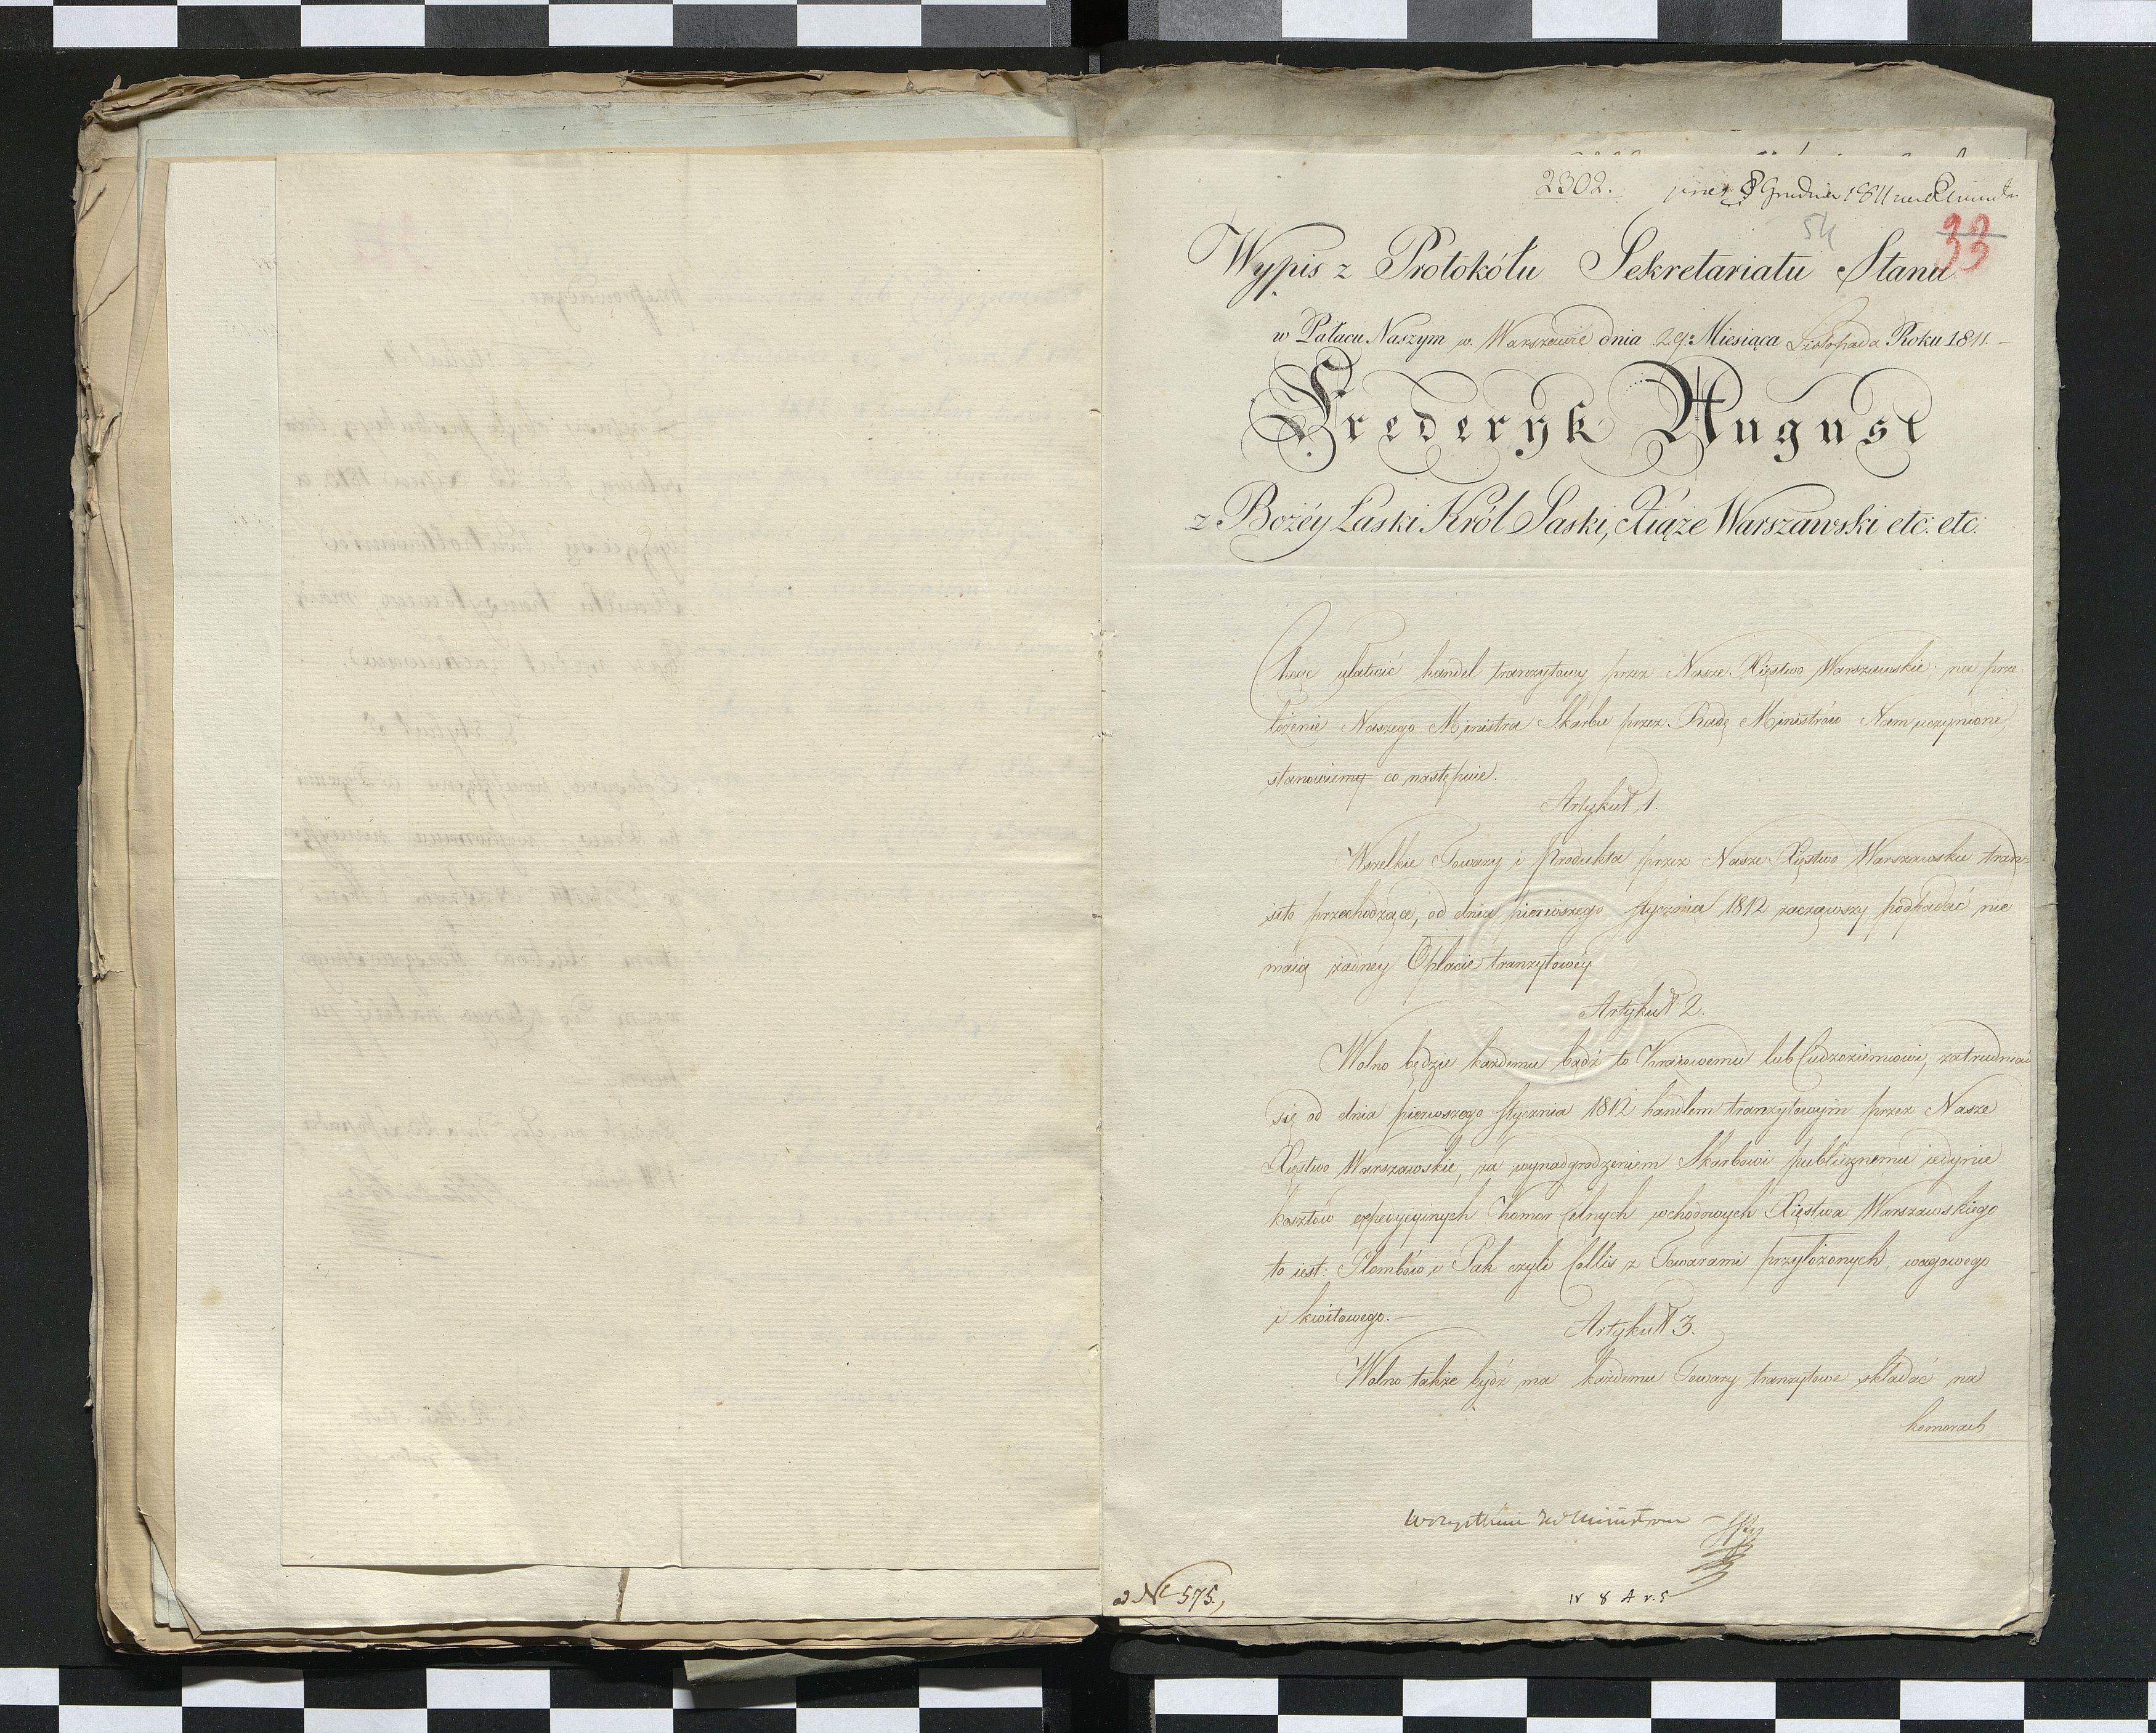 2302.
8 Grudnia 1811
54
33
Wypis z Protokółu Sekretariatu Stanu
w Pałacu Naszym w Warszawie dnia 29. Miesiąca Listopada Roku 1811 –
Frederyk August
z Bożéy Łaski Król Saski, Xiąże Warszawski etc: etc:
Chcąc ułatwić handel tranzytowy przez Nasze Xięstwo Warszawskie na prze-
łożenie Naszego Ministra Skarbu przez Radę Ministrów Nam uczynione
stanowiemy co następuie.
Artykuł 1.
Wszelkie Towary i Produkta przez Nasze Xięstwo Warszawskie tran-
sito przechodzące, od dnia pierwszego Stycznia 1812 zacząwszy podpadać nie
maią żadnéy Opłacie tranzytowéy
Artykuł 2.
Wolno będzie każdemu bądź to Kraiowemu lub Cudzoziemcowi, zatrudniać
się od dnia pierwszego Stycznia 1812 handlem tranzytowym przez Nasze
Xięstwo Warszawskie, za wynadgrodzeniem Skarbowi publicznemu iedynie
kosztów expedycyinych Komor Celnych wchodowych Xięstwa Warszawskiego
to iest: Plombów i Pak czyli Collis z Towarami przyłożonych, wagowego
i kwitowego. –
Artykuł 3.
Wolno także bydź ma każdemu Towary tranzytowe składać na
komorach
ad Nº 575.,